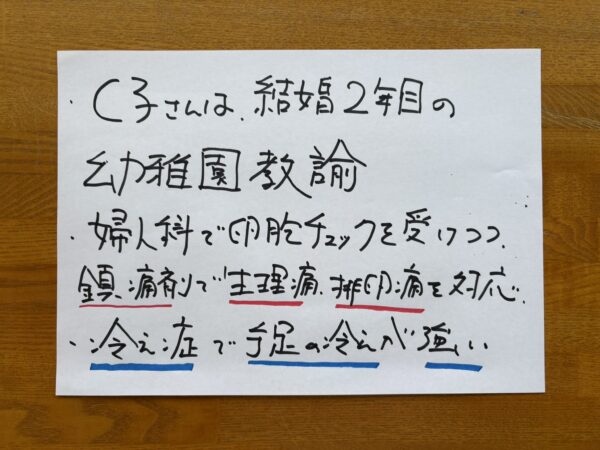 ・C子さんは、結婚2年目の
幼稚園教諭
・婦人科で卵胞チェックを受けつつ、
鎮痛剤で生理痛、排卵痛を対応。
・冷え症で手足の冷えが強い